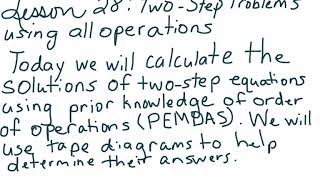 Lesson 28: Two-Step Problems
using all operations
Today we will calculate the
solutions of two-step equations
using prior knowledge of order
of operations (PEMDAS). We will
use tape diagrams to help
determine their answers.